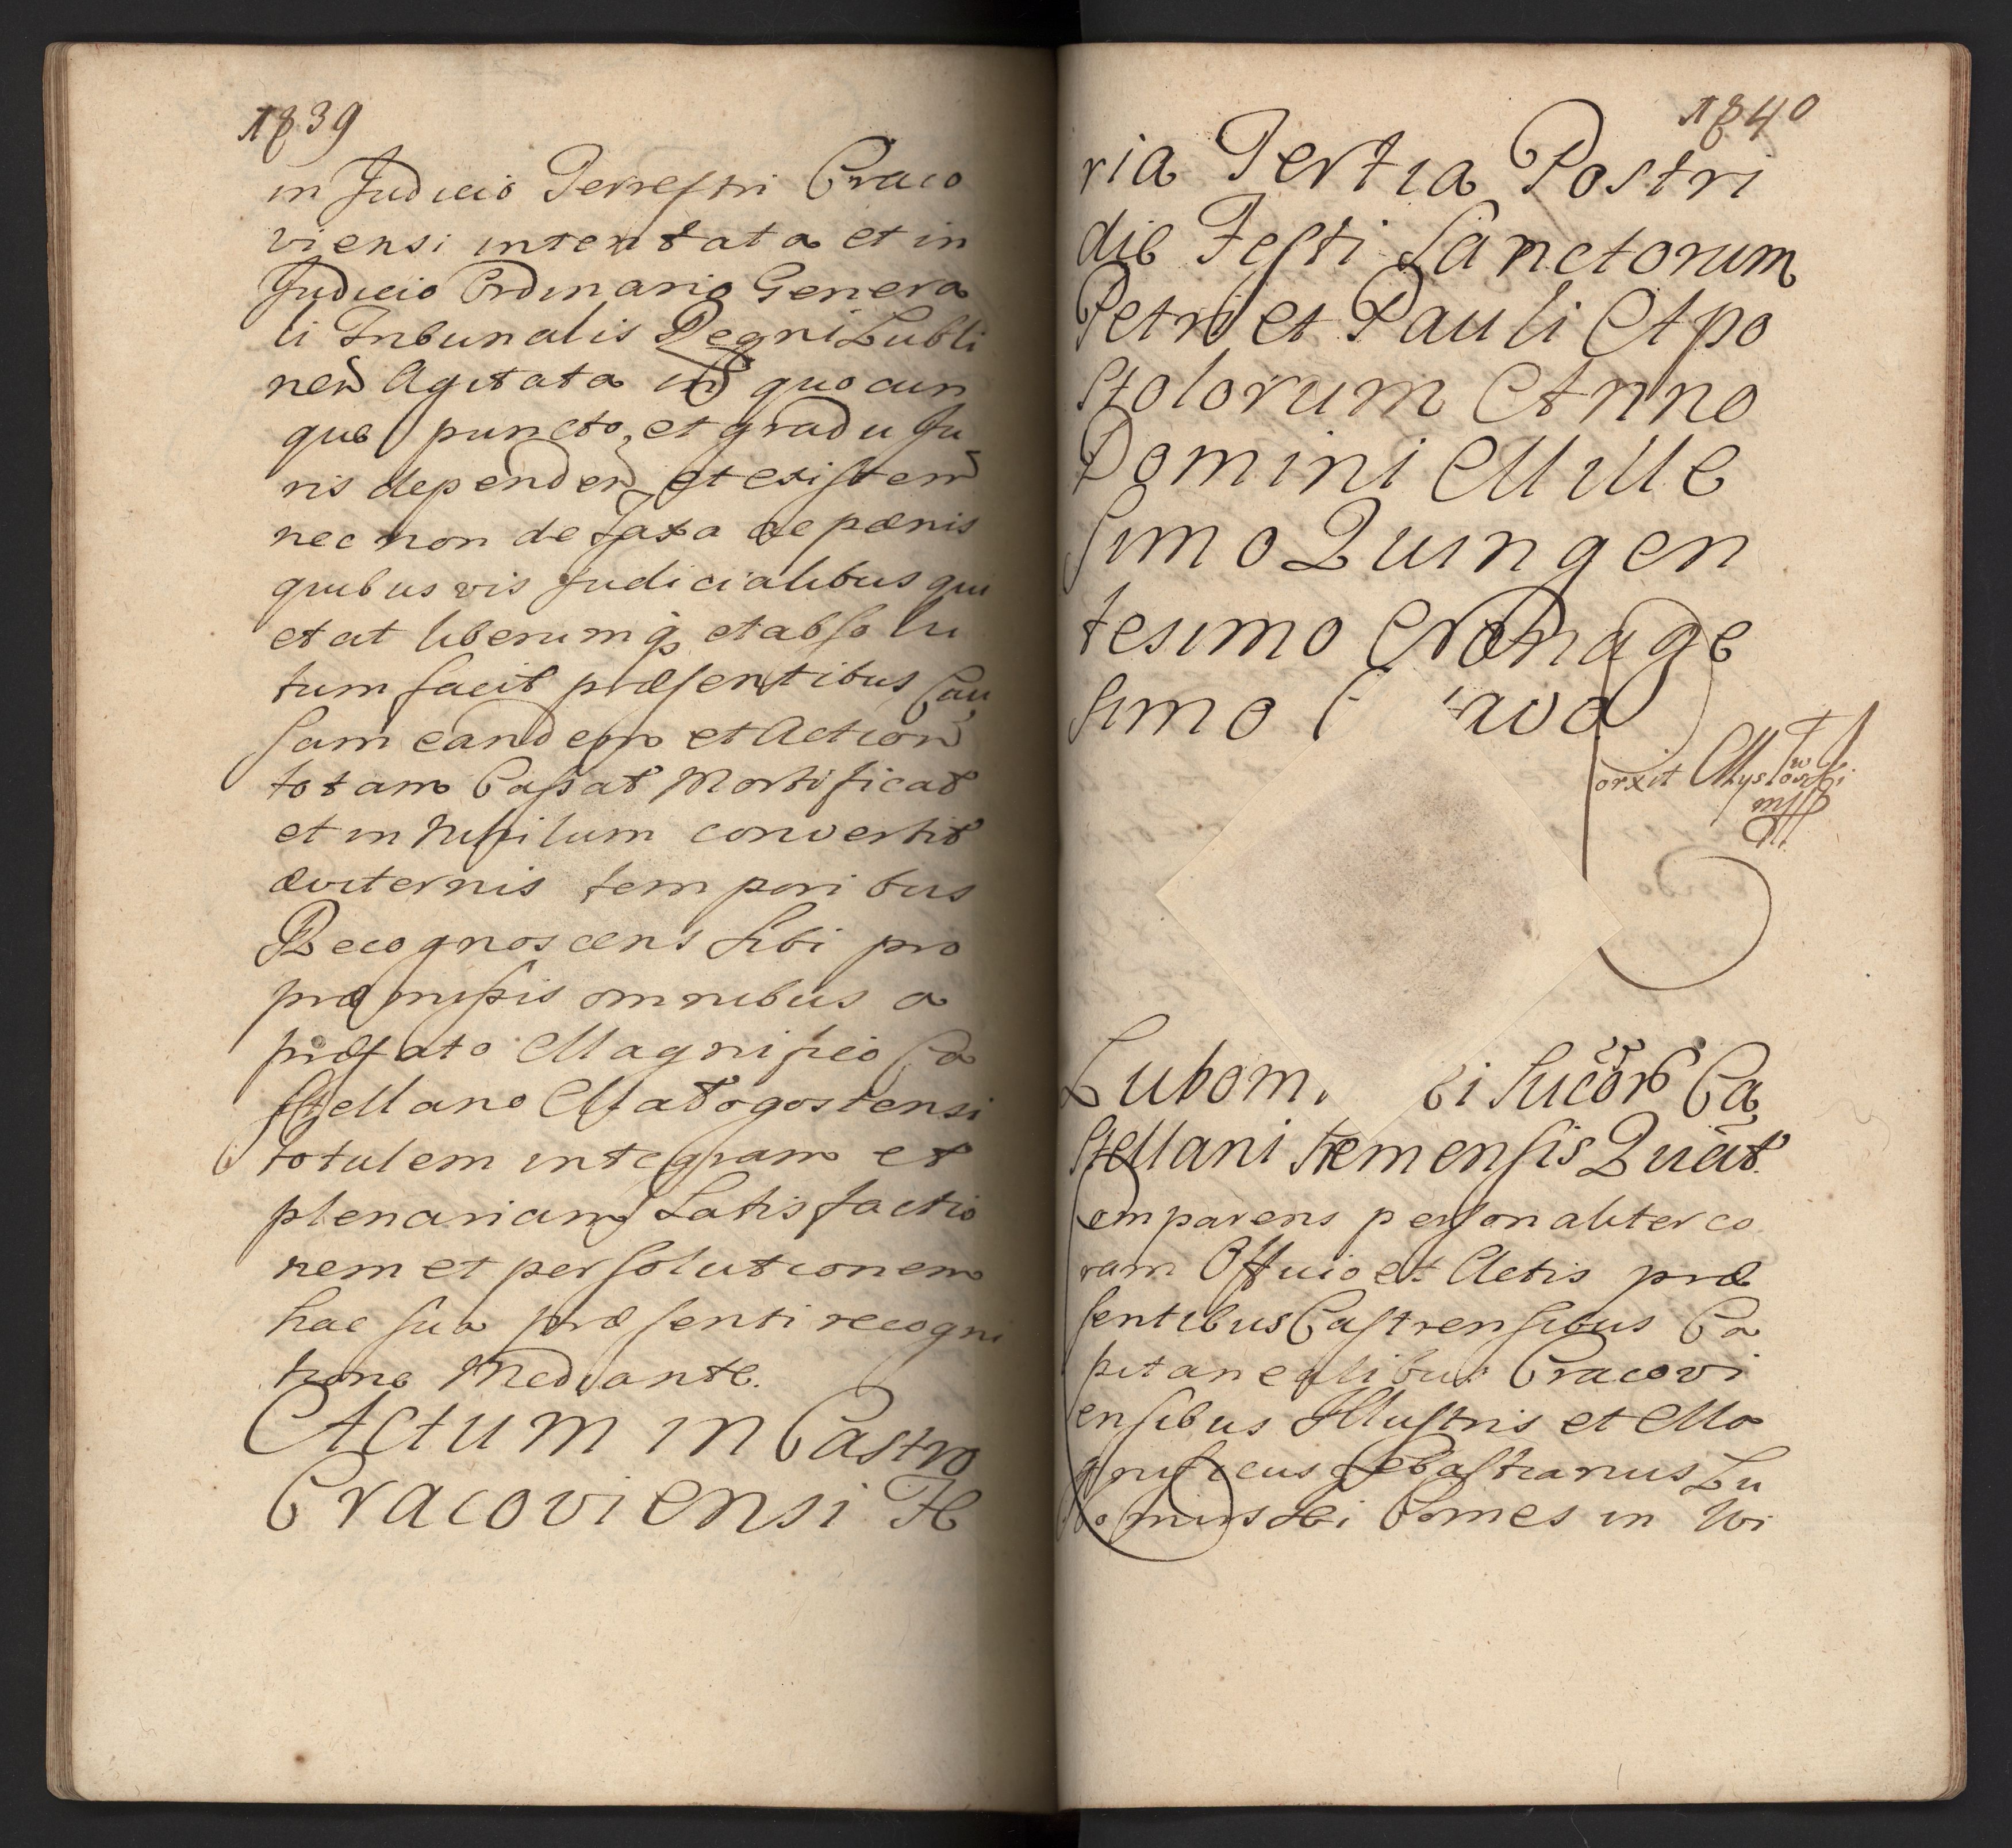 1839
in Judicio Terrestri Craco
viensi intentata et in
Judicio Ordinario Genera
li Tribunalis Regni Lubli
nen Agitata in quocun
que puncto, et gradu Ju
ris dependen et existen
nec non de taxa ac pænis
quibusvis Judicialibus qui
etat liberumq, et absolu
tum facit præsentibus Cau
sam eandem et Action
totam Cassat Mortificat
et in Nihilum convertit
æviternis temporibus
Recognoscens sibi pro
præmissis omnibus a
præfato Magnifico Ca
stellano Małogostensi
totalem integram et
plenariam Satisfactio
nem et persolutionem
hac sua præsenti recogni
tione Mediante.
Actum in Castro
Cracoviensi Fe
1840
ria Tertia Postri
die Festi Sanctorum
Petri et Pauli Apo
stolorum Anno
Domini Mille
simo Quingen
tesimo Nonage
simo avo
orxit
Lubom ki Succor Ca
stellani Quiat.
Comparens personaliter co
ram Officio et Actis præ
sentibus Castrensibus Ca
pitanealibus Cracovi
ensibus Illustris et Ma
gnificus Sebastianus Lu
bomirski Comes in Wi